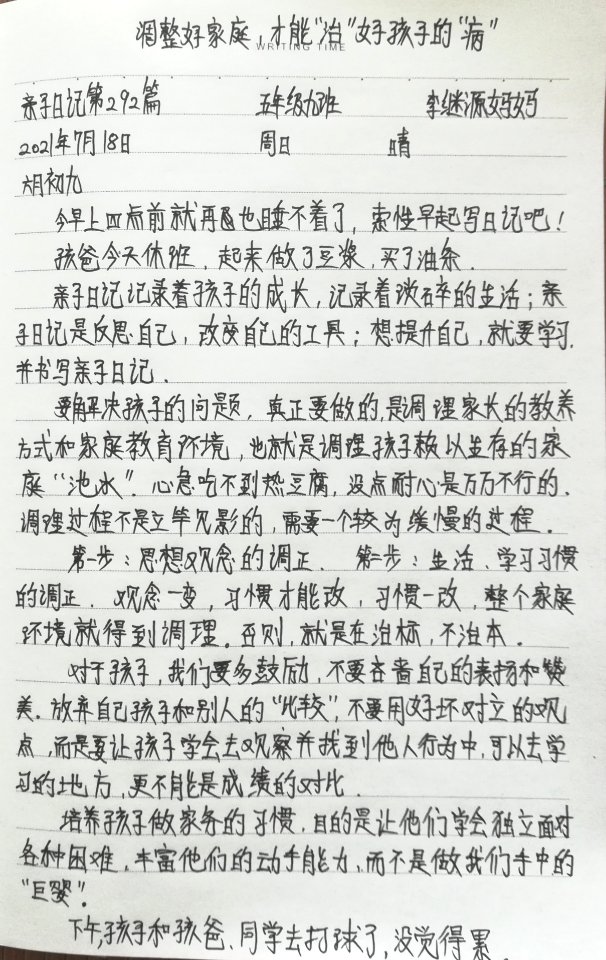 调整好家庭，才能"治"好孩子的"病"
WRITING TIME
亲子日记第292篇 五年级九班 李继源妈妈
2021年7月18日 周日 晴
六月初九
今早上四点前就再也睡不着了，索性早起写日记吧！
孩爸今天休班，起来做了豆浆，买了油条.
亲子日记记录着孩子的成长，记录着琐碎的生活；亲
子日记是反思自己，改变自己的工具；想提升自己，就要学习.
并书写亲子日记.
要解决孩子的问题，真正要做的，是调理家长的教养
方式和家庭教育环境，也就是调理孩子赖以生存的家
庭"池水". 心急吃不到热豆腐，没点耐心是万万不行的.
调理过程不是立竿见影的，需要一个较为缓慢的过程.
第一步：思想观念的调正. 第二步：生活、学习习惯
的调正. 观念一变，习惯才能改，习惯一改，整个家庭
环境就得到调理. 否则，就是在治标，不治本.
对于孩子，我们要多鼓励，不要吝啬自己的表扬和赞
美. 放弃自己孩子和别人的"比较"，不要用好坏对立的观
点，而是要让孩子学会去观察并找到他人行为中，可以去学
习的地方，更不能是成绩的对比.
培养孩子做家务的习惯，目的是让他们学会独立面对
各种困难，丰富他们的动手能力，而不是做我们手中的
"巨婴".
下午，孩子和孩爸、同学去打球了，没觉得累.